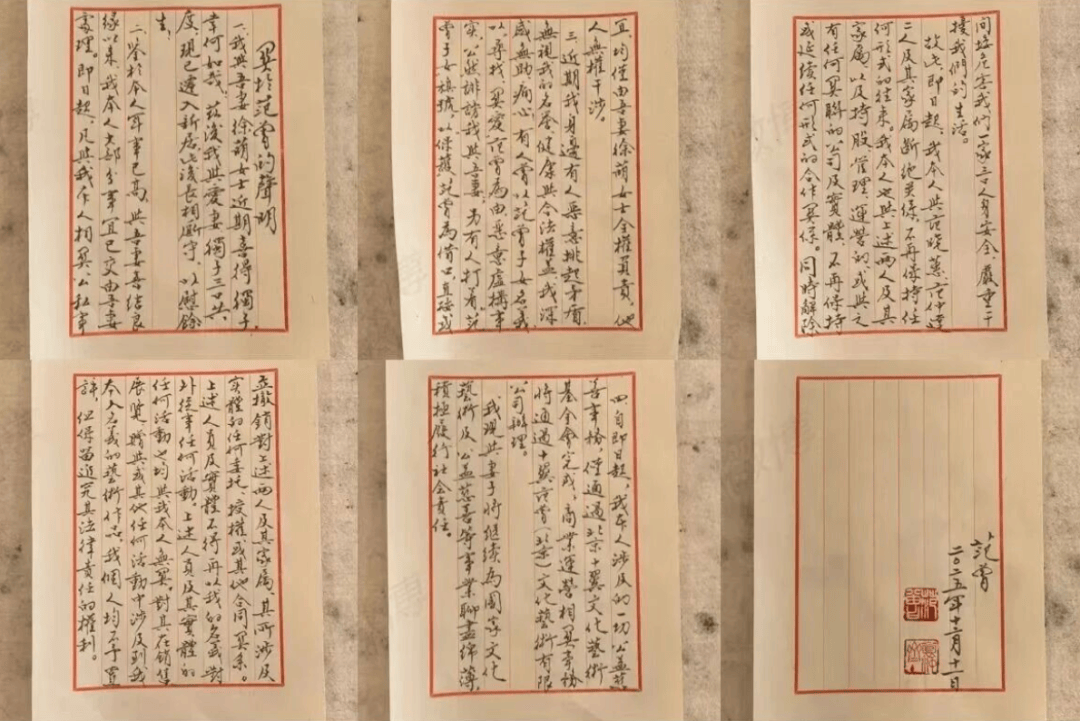 関於范曾的聲明
一、我與吾妻徐萌女士近期喜得獨子,
幸何如哉。茲後我與愛妻獨子三口共
度,現已遷入新居此後長相廝守,以慰餘
生。
二、鉴於本人年事已高,與吾妻喜結良
緣以来,我本人大部分事宜已交由吾妻
處理。即日起,凡與我本人相関,公私事
宜,均僅由吾妻徐萌女士全權負責,他
人無權干涉。
三、近期我身邊有人惡意挑起矛盾,
無視我的名譽、健康與合法權益,我深
感無助痛心,有人曾以范曾子女名義,
以尋找、関愛范曾為由,惡意虛構事
实,公然誹謗我與吾妻,另有人打着范
曾子女旗號,以保護范曾為借口,直接或
间接危害我們一家三口人身安全,嚴重干
擾我們的生活。
故此,即日起,我本人與范晓蕙、范仲達
二人及其家属斷絶関係,不再保持任
何形式的往来。我本人也與上述兩人及其
家属以及持股、管理、運營的、或與之
有任何関聯的公司及實體,不再保持
或延續任何形式的合作関係。同時解除
並撤銷對上述兩人及其家属、其所涉及
實體的任何委托、授權或其他合同関系。
上述人員及實體不得再以我的名義對
外從事任何活動。上述人員及其實體的
任何活動也均與我本人無関。對其在銷售、
展覽、贈與或其他任何活動中涉及到我
本人名義的藝術作品,我個人均不予置
評,但保留追究其法律責任的權利。
四、自即日起,我本人涉及的一切公益慈
善事務,僅通過北京十翼文化藝術
基金會完成,商業運營相関事務
將通過十翼范曾(北京)文化藝術有限
公司辦理。
我現與妻子將繼续為國家文化
藝術及公益慈善等事業聊盡綿薄,
積極履行社會責任。
范曾
二〇二五年十二月十一日